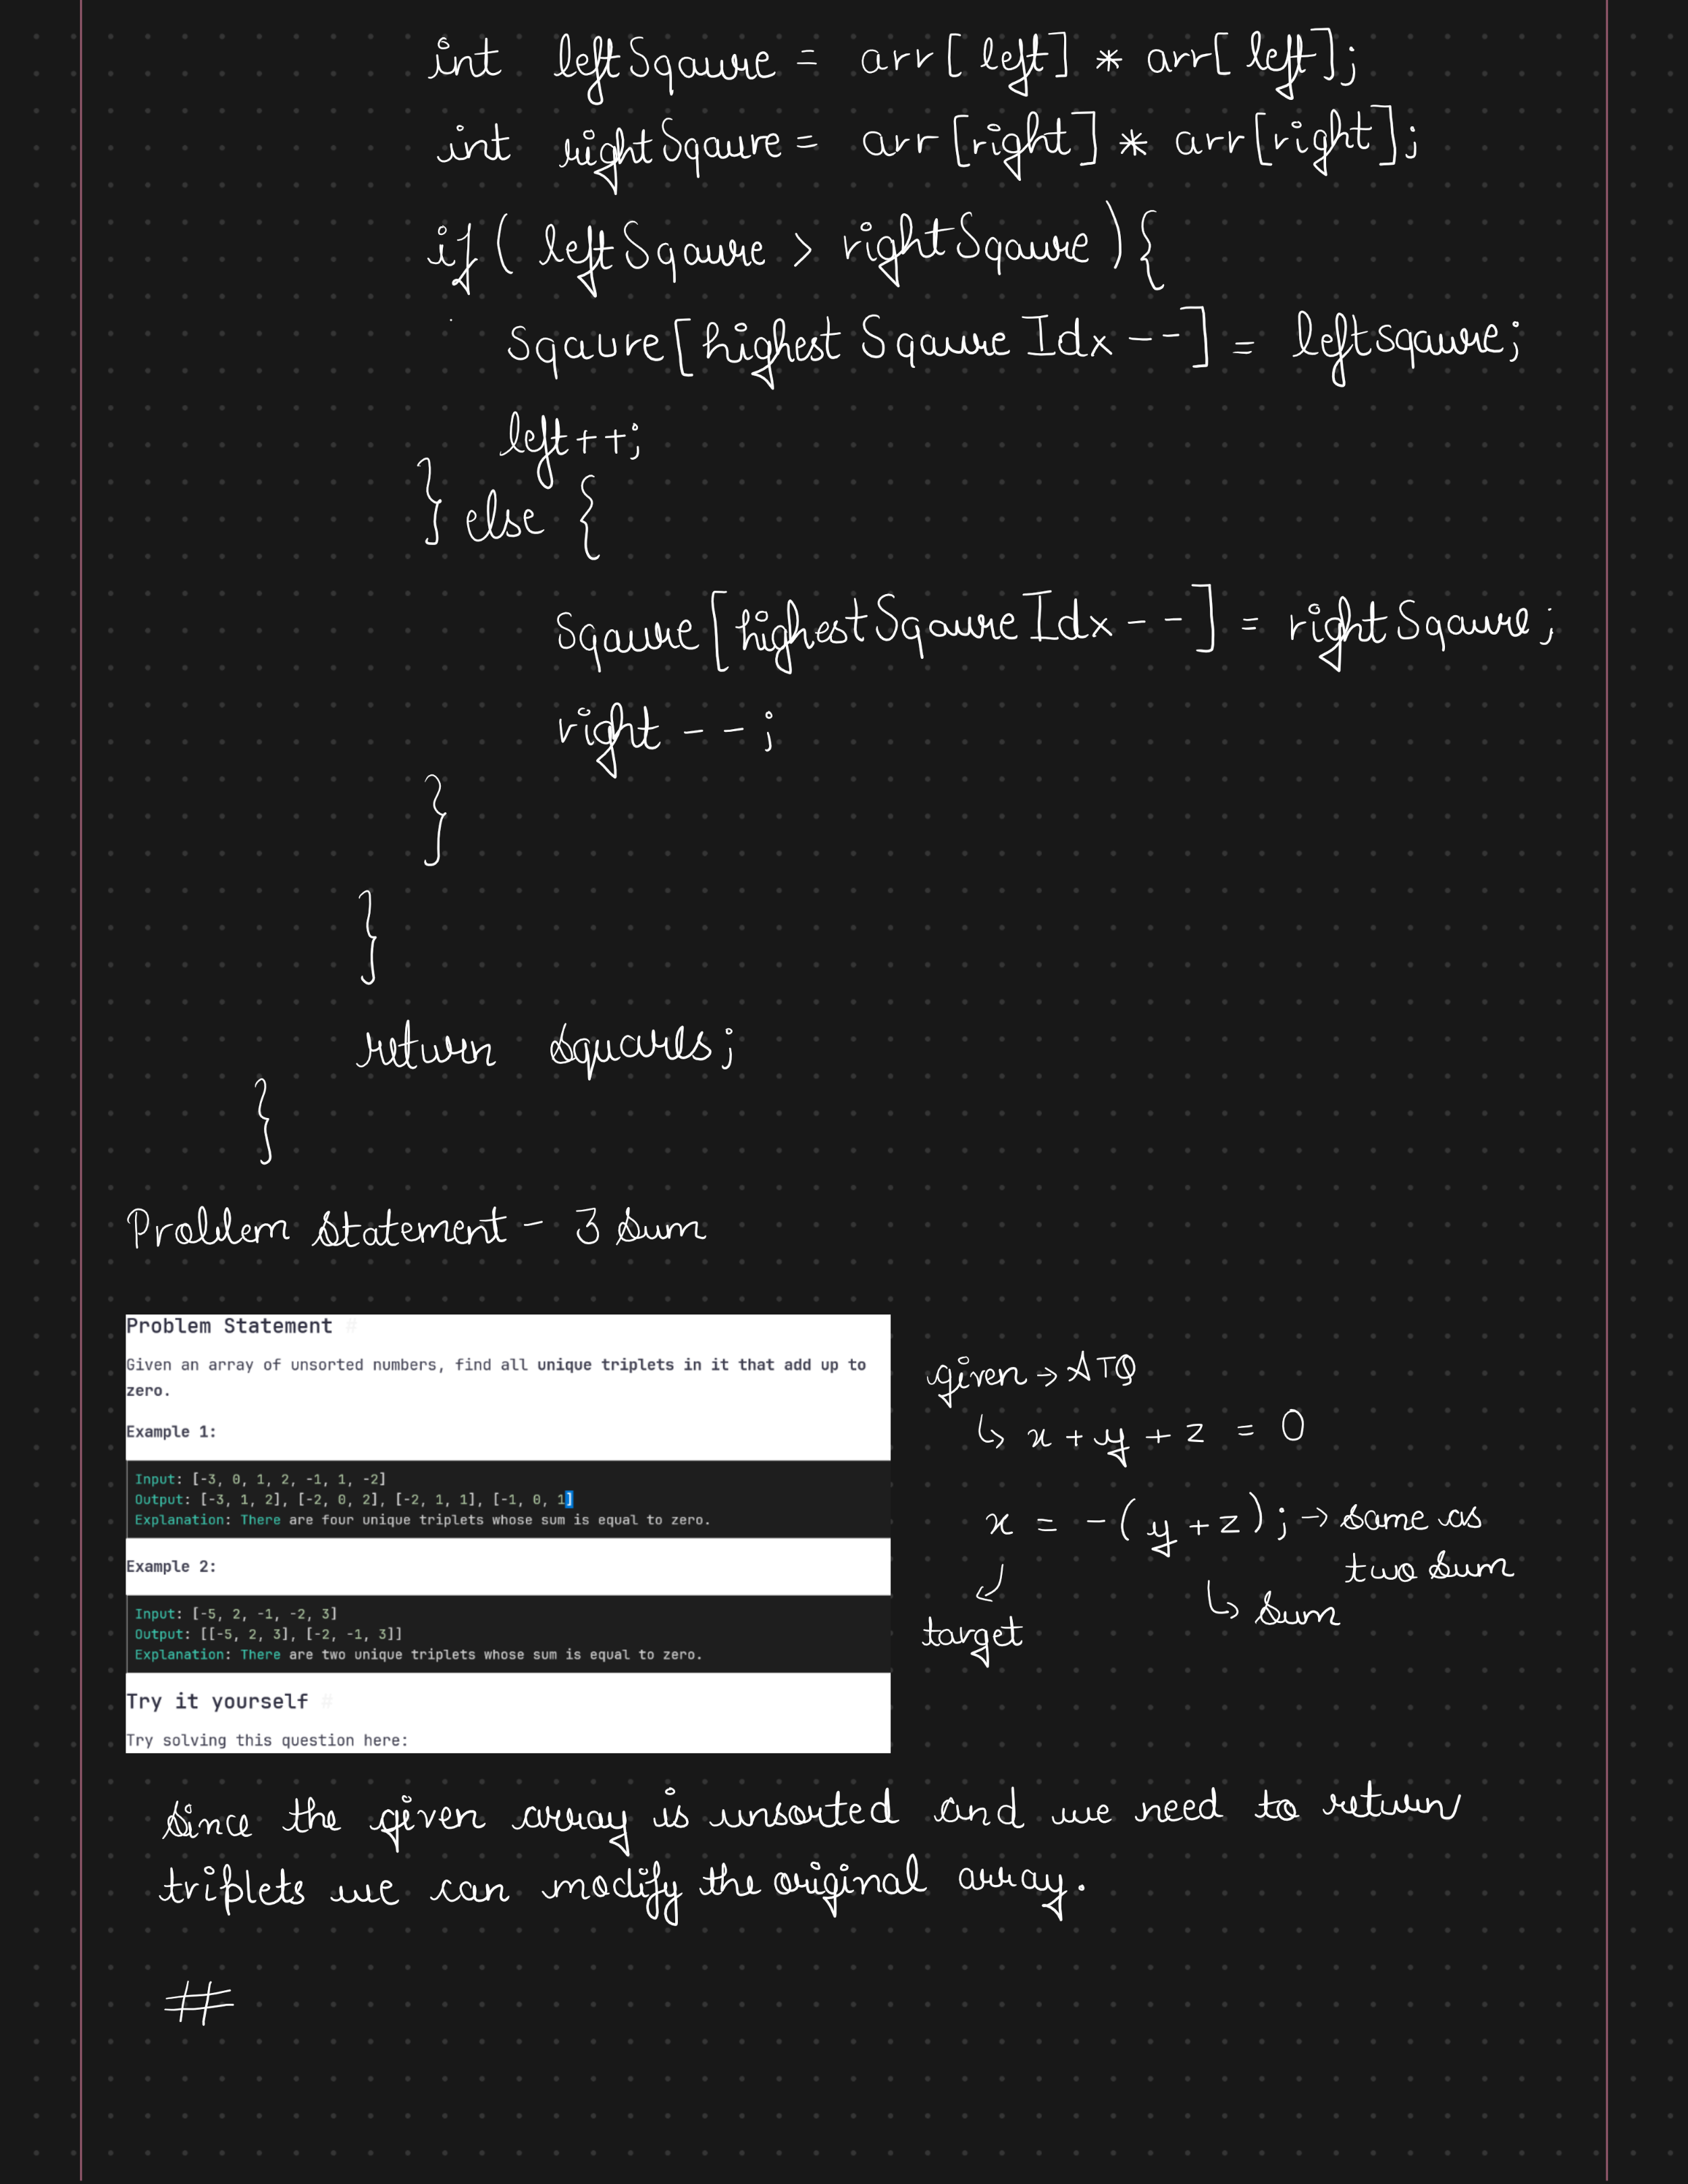 int leftSqaure = arr[left] * arr[left];
int rightSqaure = arr[right] * arr[right];
if( leftSqaure > rightSqaure ){
Sqaure[highestSqaureIdx--] = leftsqaure;
left++;
} else {
Sqaure[highestSqaureIdx--] = rightSqaure;
right--;
}
}
return squares;
}
Problem statement - 3 sum
Problem Statement #
Given an array of unsorted numbers, find all unique triplets in it that add up to
zero.
Example 1:
Input: [-3, 0, 1, 2, -1, 1, -2]
Output: [-3, 1, 2], [-2, 0, 2], [-2, 1, 1], [-1, 0, 1]
Explanation: There are four unique triplets whose sum is equal to zero.
Example 2:
Input: [-5, 2, -1, -2, 3]
Output: [[-5, 2, 3], [-2, -1, 3]]
Explanation: There are two unique triplets whose sum is equal to zero.
Try it yourself #
Try solving this question here:
given → ATQ
↳ x + y + z = 0
x = -(y+z); → same as
two sum
↳ sum
target
since the given array is unsorted and we need to return
triplets we can modify the original array.
#